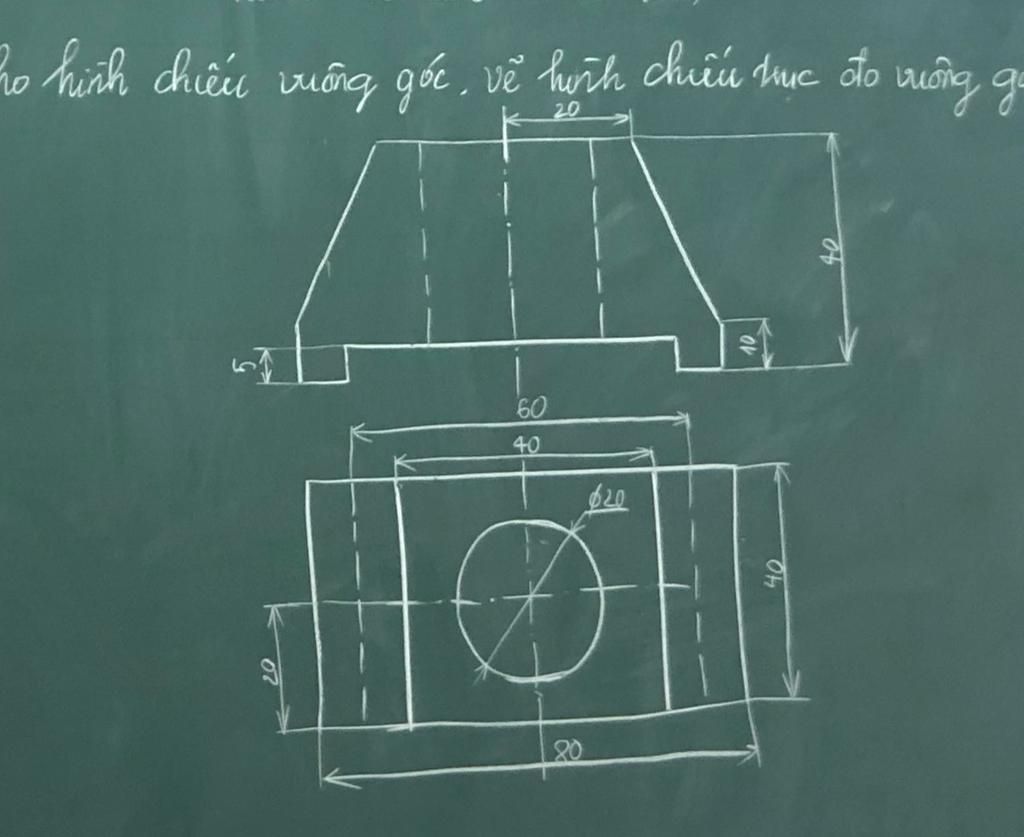 ho hình chiếu vuông góc, vẽ hình chiếu trục đo vuông gó
20
40
10
5
60
40
ϕ20
40
20
80